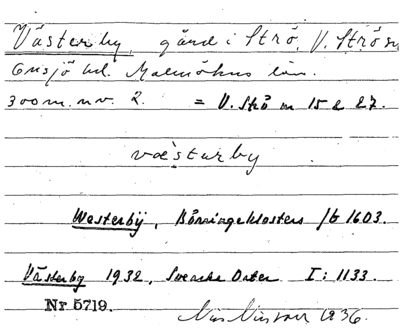 Västerby, gård i Strö, V. Strö sn
Onsjö hd. Malmöhus län.
300 m. nv. 2. = V. Strö nr 15 & 27.
væsturby
Westerbÿ, Börringeklosters jb 1603.
Västerby 1932, Svenska Orter I: 1133.
Nr 5719.
Nils Nilsson 1936.